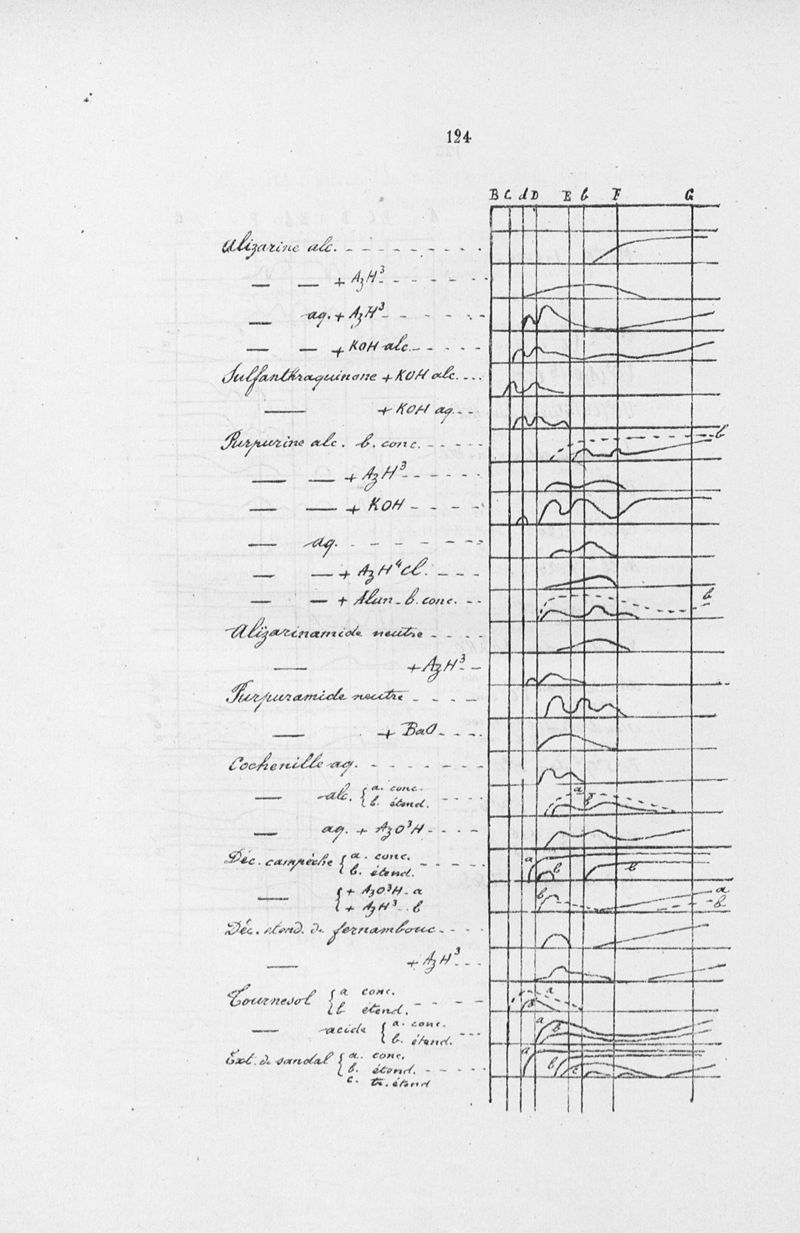 124
B C d D E b F G
Alizarine alc.
— — + AzH³
— aq. + AzH³
— — + KOH alc.
Sulfanthraquinone + KOH alc.
— + KOH aq.
Purpurine alc. b. conc.
b
— — + AzH³
— — + KOH
— aq.
— — + AzH⁴Cl.
— — + Alun. b. conc.
b
Alizarinamide neutre
— + AzH³
Purpuramide neutre
— + BaO
Cochenille aq.
— alc. { a. conc.
b. étend.
a
b
— aq. + AzO³H
Déc. campêche { a. conc.
b. étend.
a b b
— { + AzO³H. a
+ AzH³.. b
b a
b
Déc. étend. de fernambouc
— + AzH³
Tournesol { a conc.
b étend.
a
b
— acide { a. conc.
b. étend.
a b
Ext. de sandal { a. conc.
b. étend.
c. tr. étend
a b c